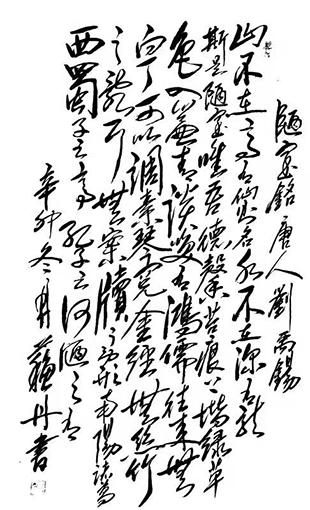 陋室銘唐人劉禹錫
山不在高有仙則名水不在深有龍
斯是陋室唯吾德馨苔痕上階綠草
色入簾青談笑有鴻儒往來無
白丁可以調素琴閱金經無絲竹
之亂耳無案牘之勞形南陽諸葛
西蜀子云亭孔子云何陋之有
辛卯冬月蘇丹書